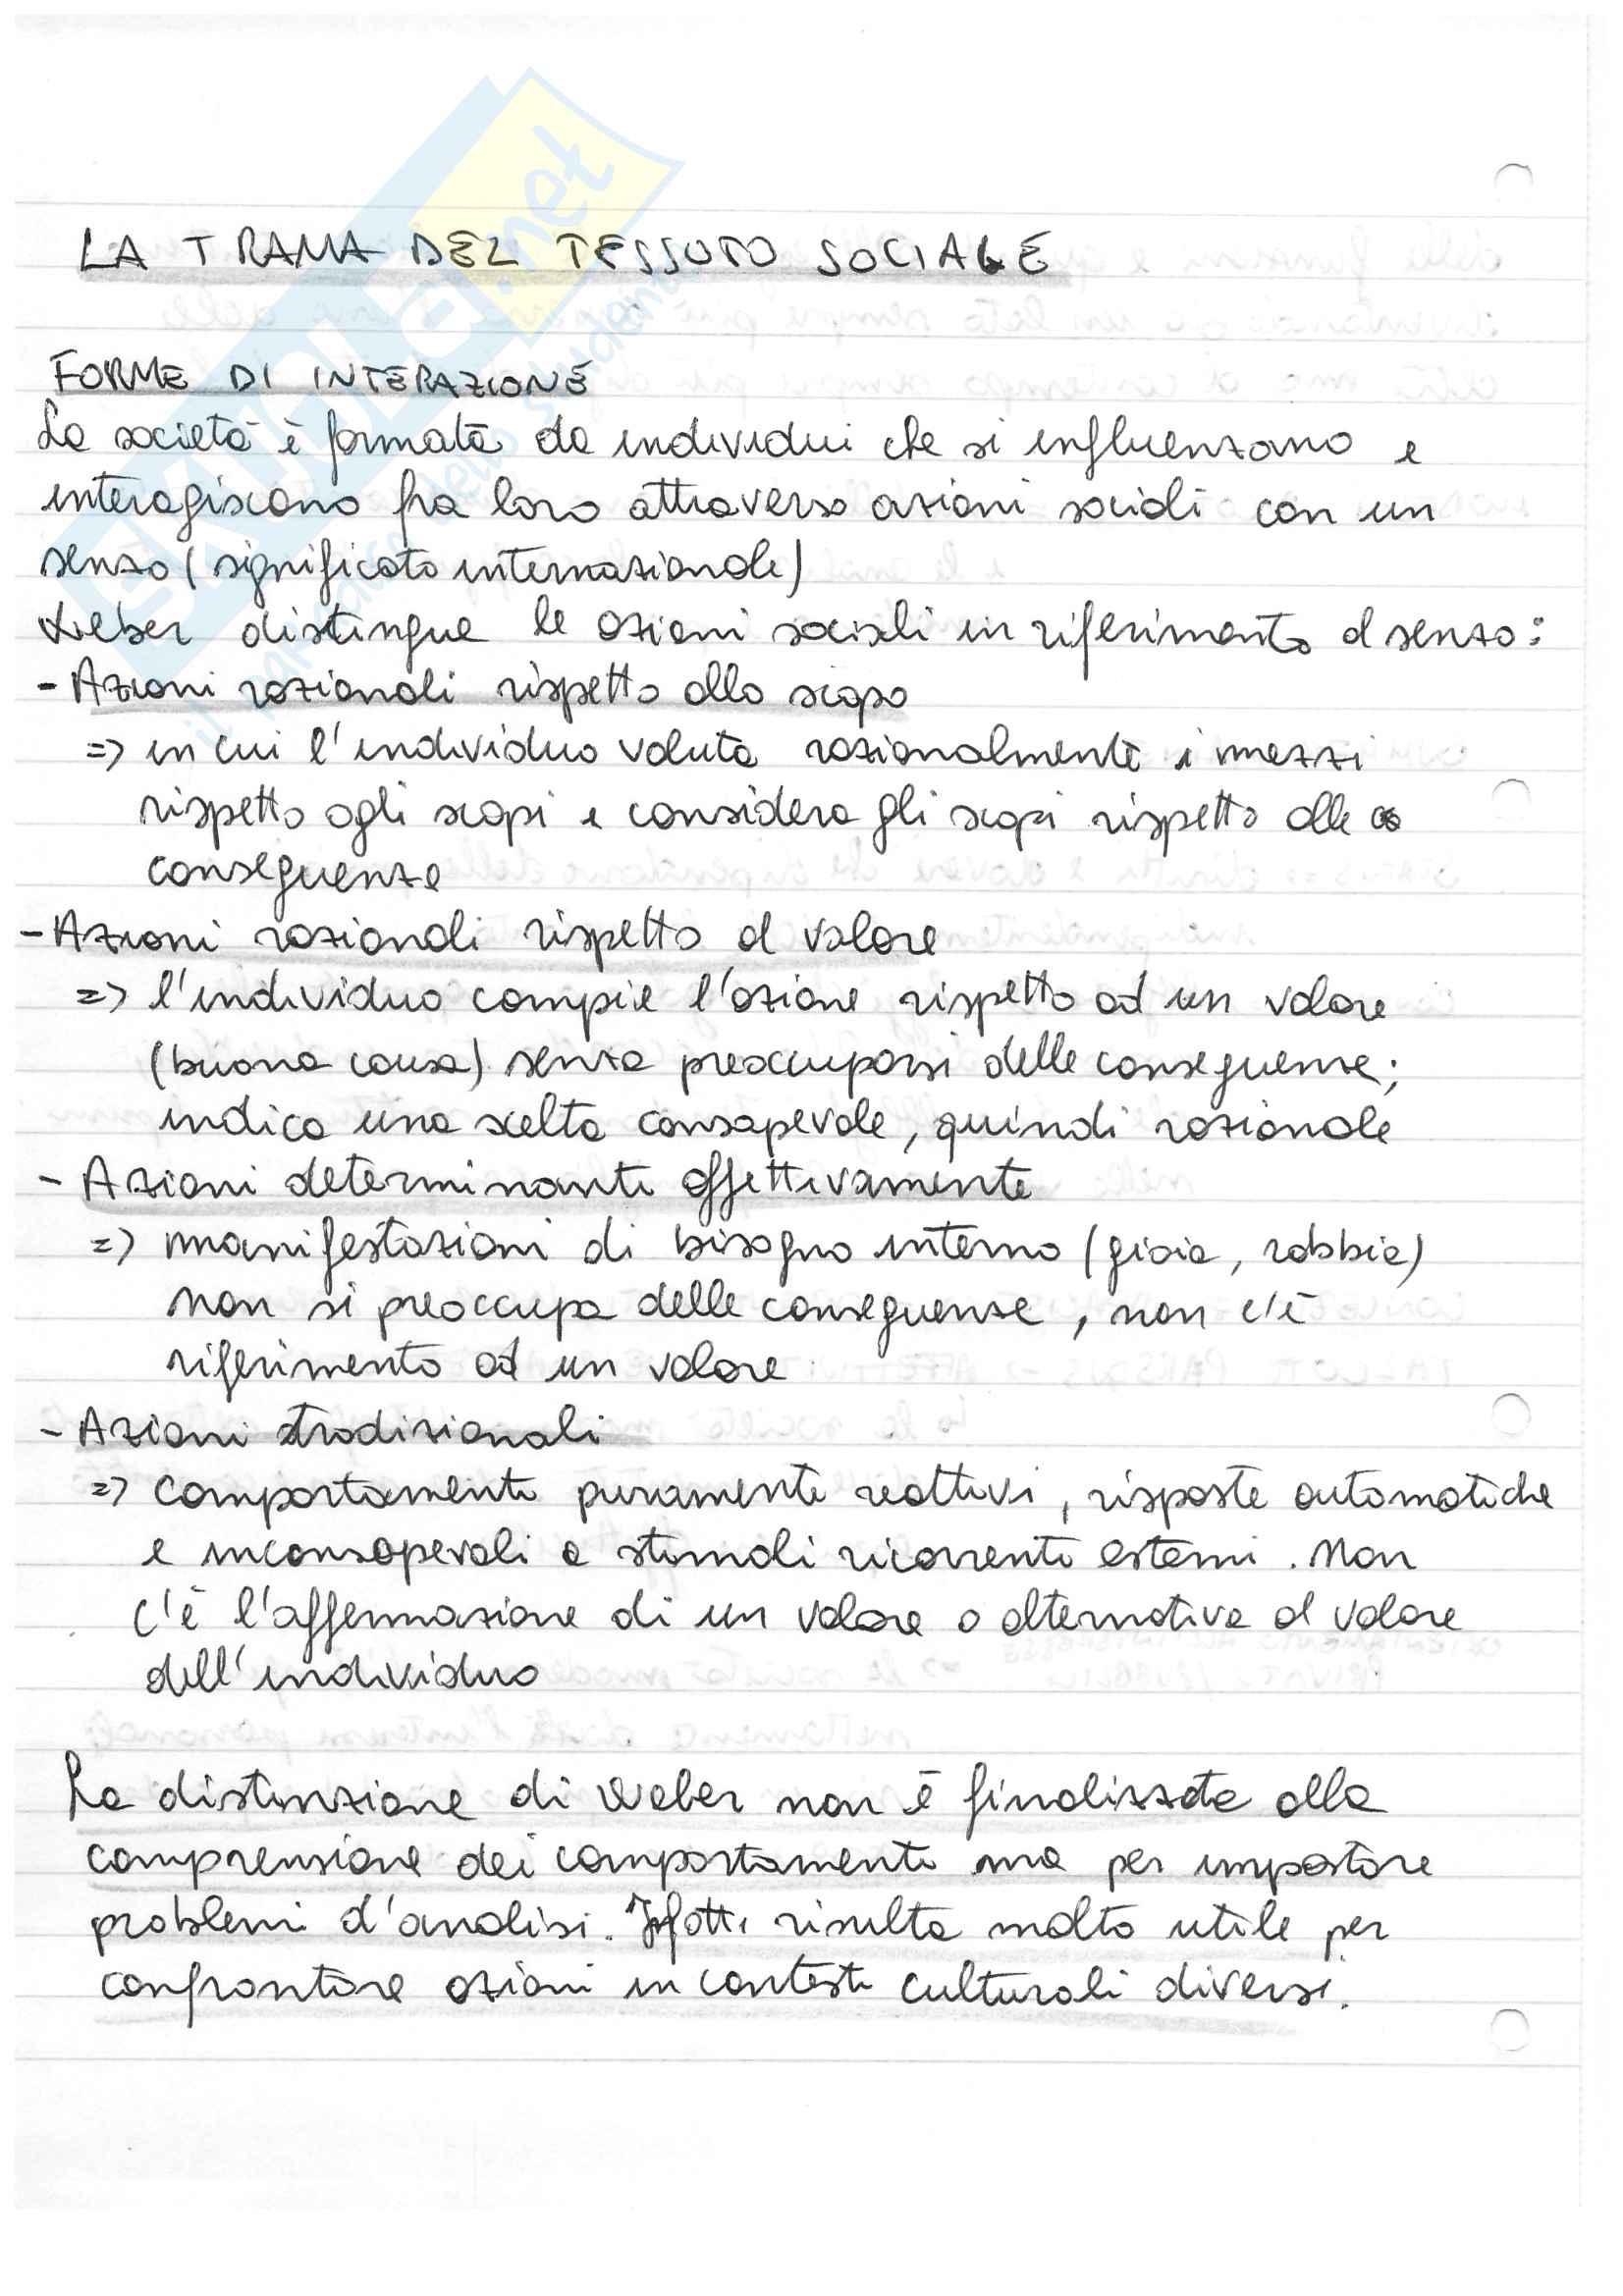 LA TRAMA DEL TESSUTO SOCIALE
FORME DI INTERAZIONE
La società è formata da individui che si influenzano e
interagiscono fra loro attraverso azioni sociali con un
senso (significato internazionale)
Weber distingue le azioni sociali in riferimento al senso:
- Azioni razionali rispetto allo scopo
=> in cui l'individuo valuta razionalmente i mezzi
rispetto agli scopi e considera gli scopi rispetto alle
conseguenze
- Azioni razionali rispetto al valore
=> l'individuo compie l'azione rispetto ad un valore
(buona causa) senza preoccuparsi delle conseguenze;
indica una scelta consapevole, quindi razionale
- Azioni determinanti affettivamente
=> manifestazioni di bisogno interno (gioia, rabbia)
non si preoccupa delle conseguenze, non c'è
riferimento ad un valore
- Azioni tradizionali
=> comportamenti puramente reattivi, risposte automatiche
e inconsapevoli a stimoli ricorrenti esterni. Non
c'è l'affermazione di un valore o alternativa al valore
dell'individuo
La distinzione di Weber non è finalizzata alla
comprensione dei comportamenti ma per impostare
problemi d'analisi. Infatti risulta molto utile per
confrontare azioni in contesti culturali diversi.
SKUOLA.net
il paradiso dello studente